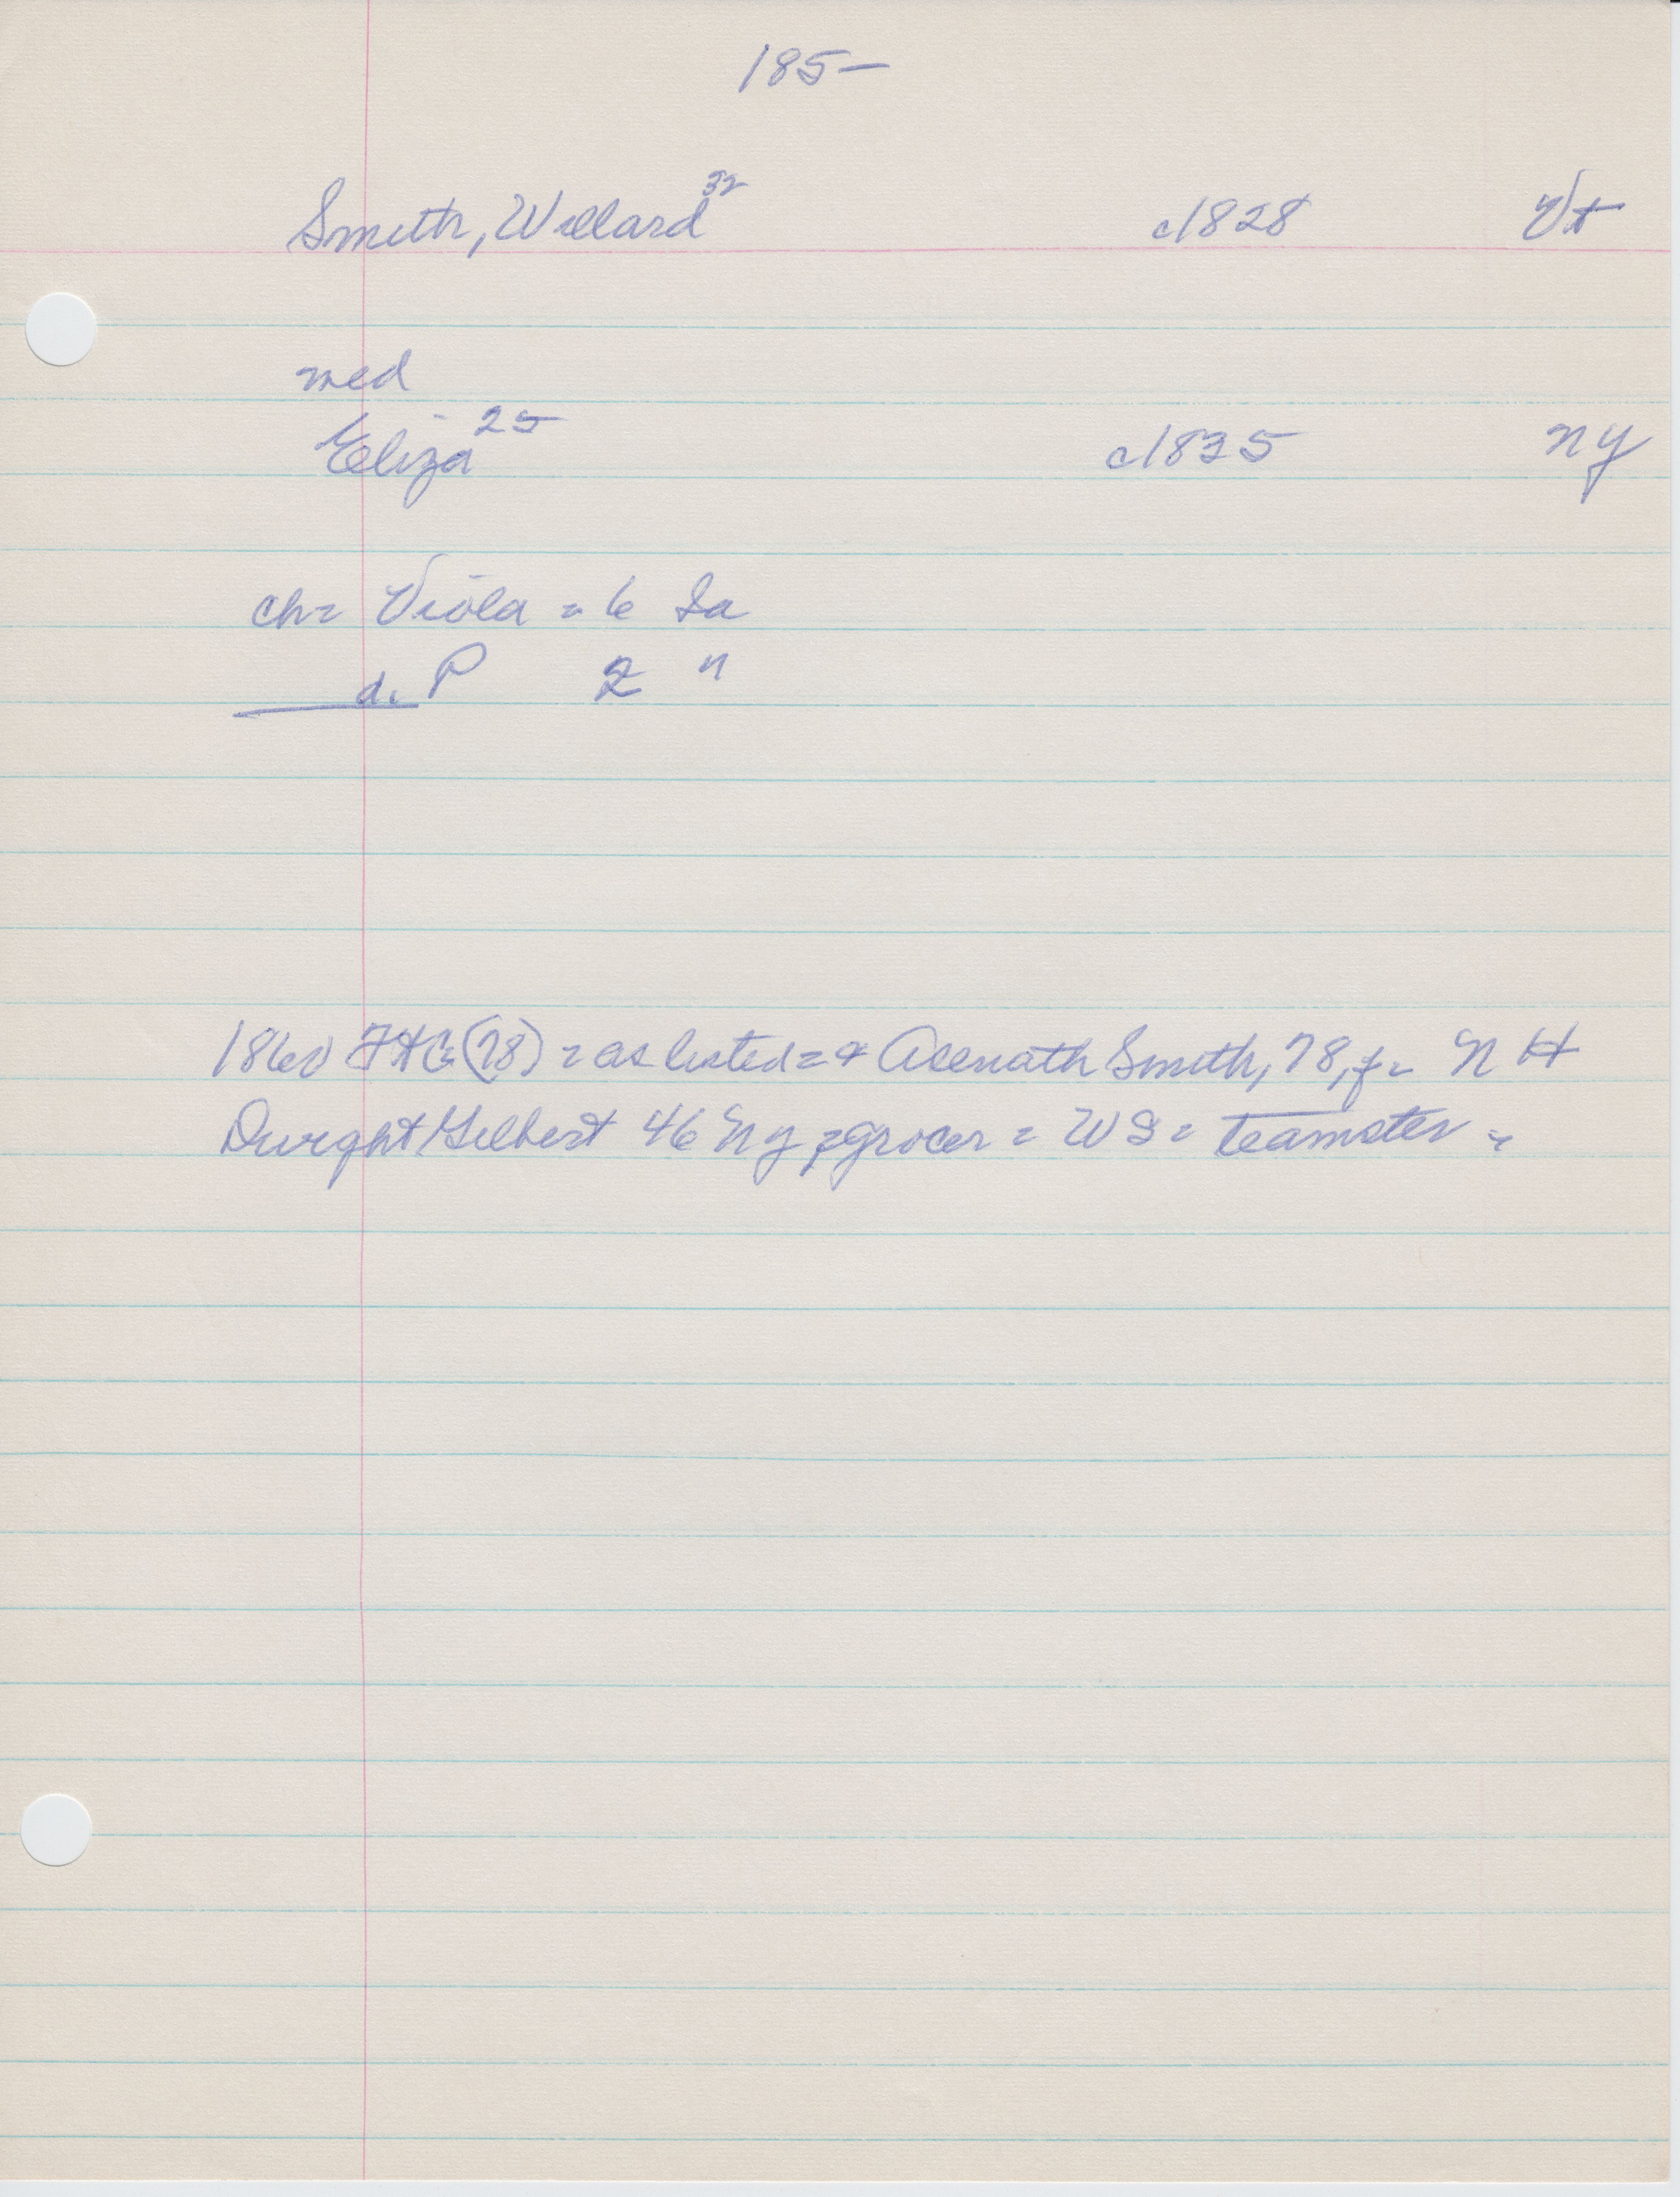 185-
Smith, Willard 32 c1828 Vt
med
Eliza 25 c1835 NY
ch = Viola = 6 Ia
d. P 2 "
1860 (78) = as listed = & Asenath Smith, 78, f = N H
Dwight Gilbert 46 NY = grocer = WS = teamster =